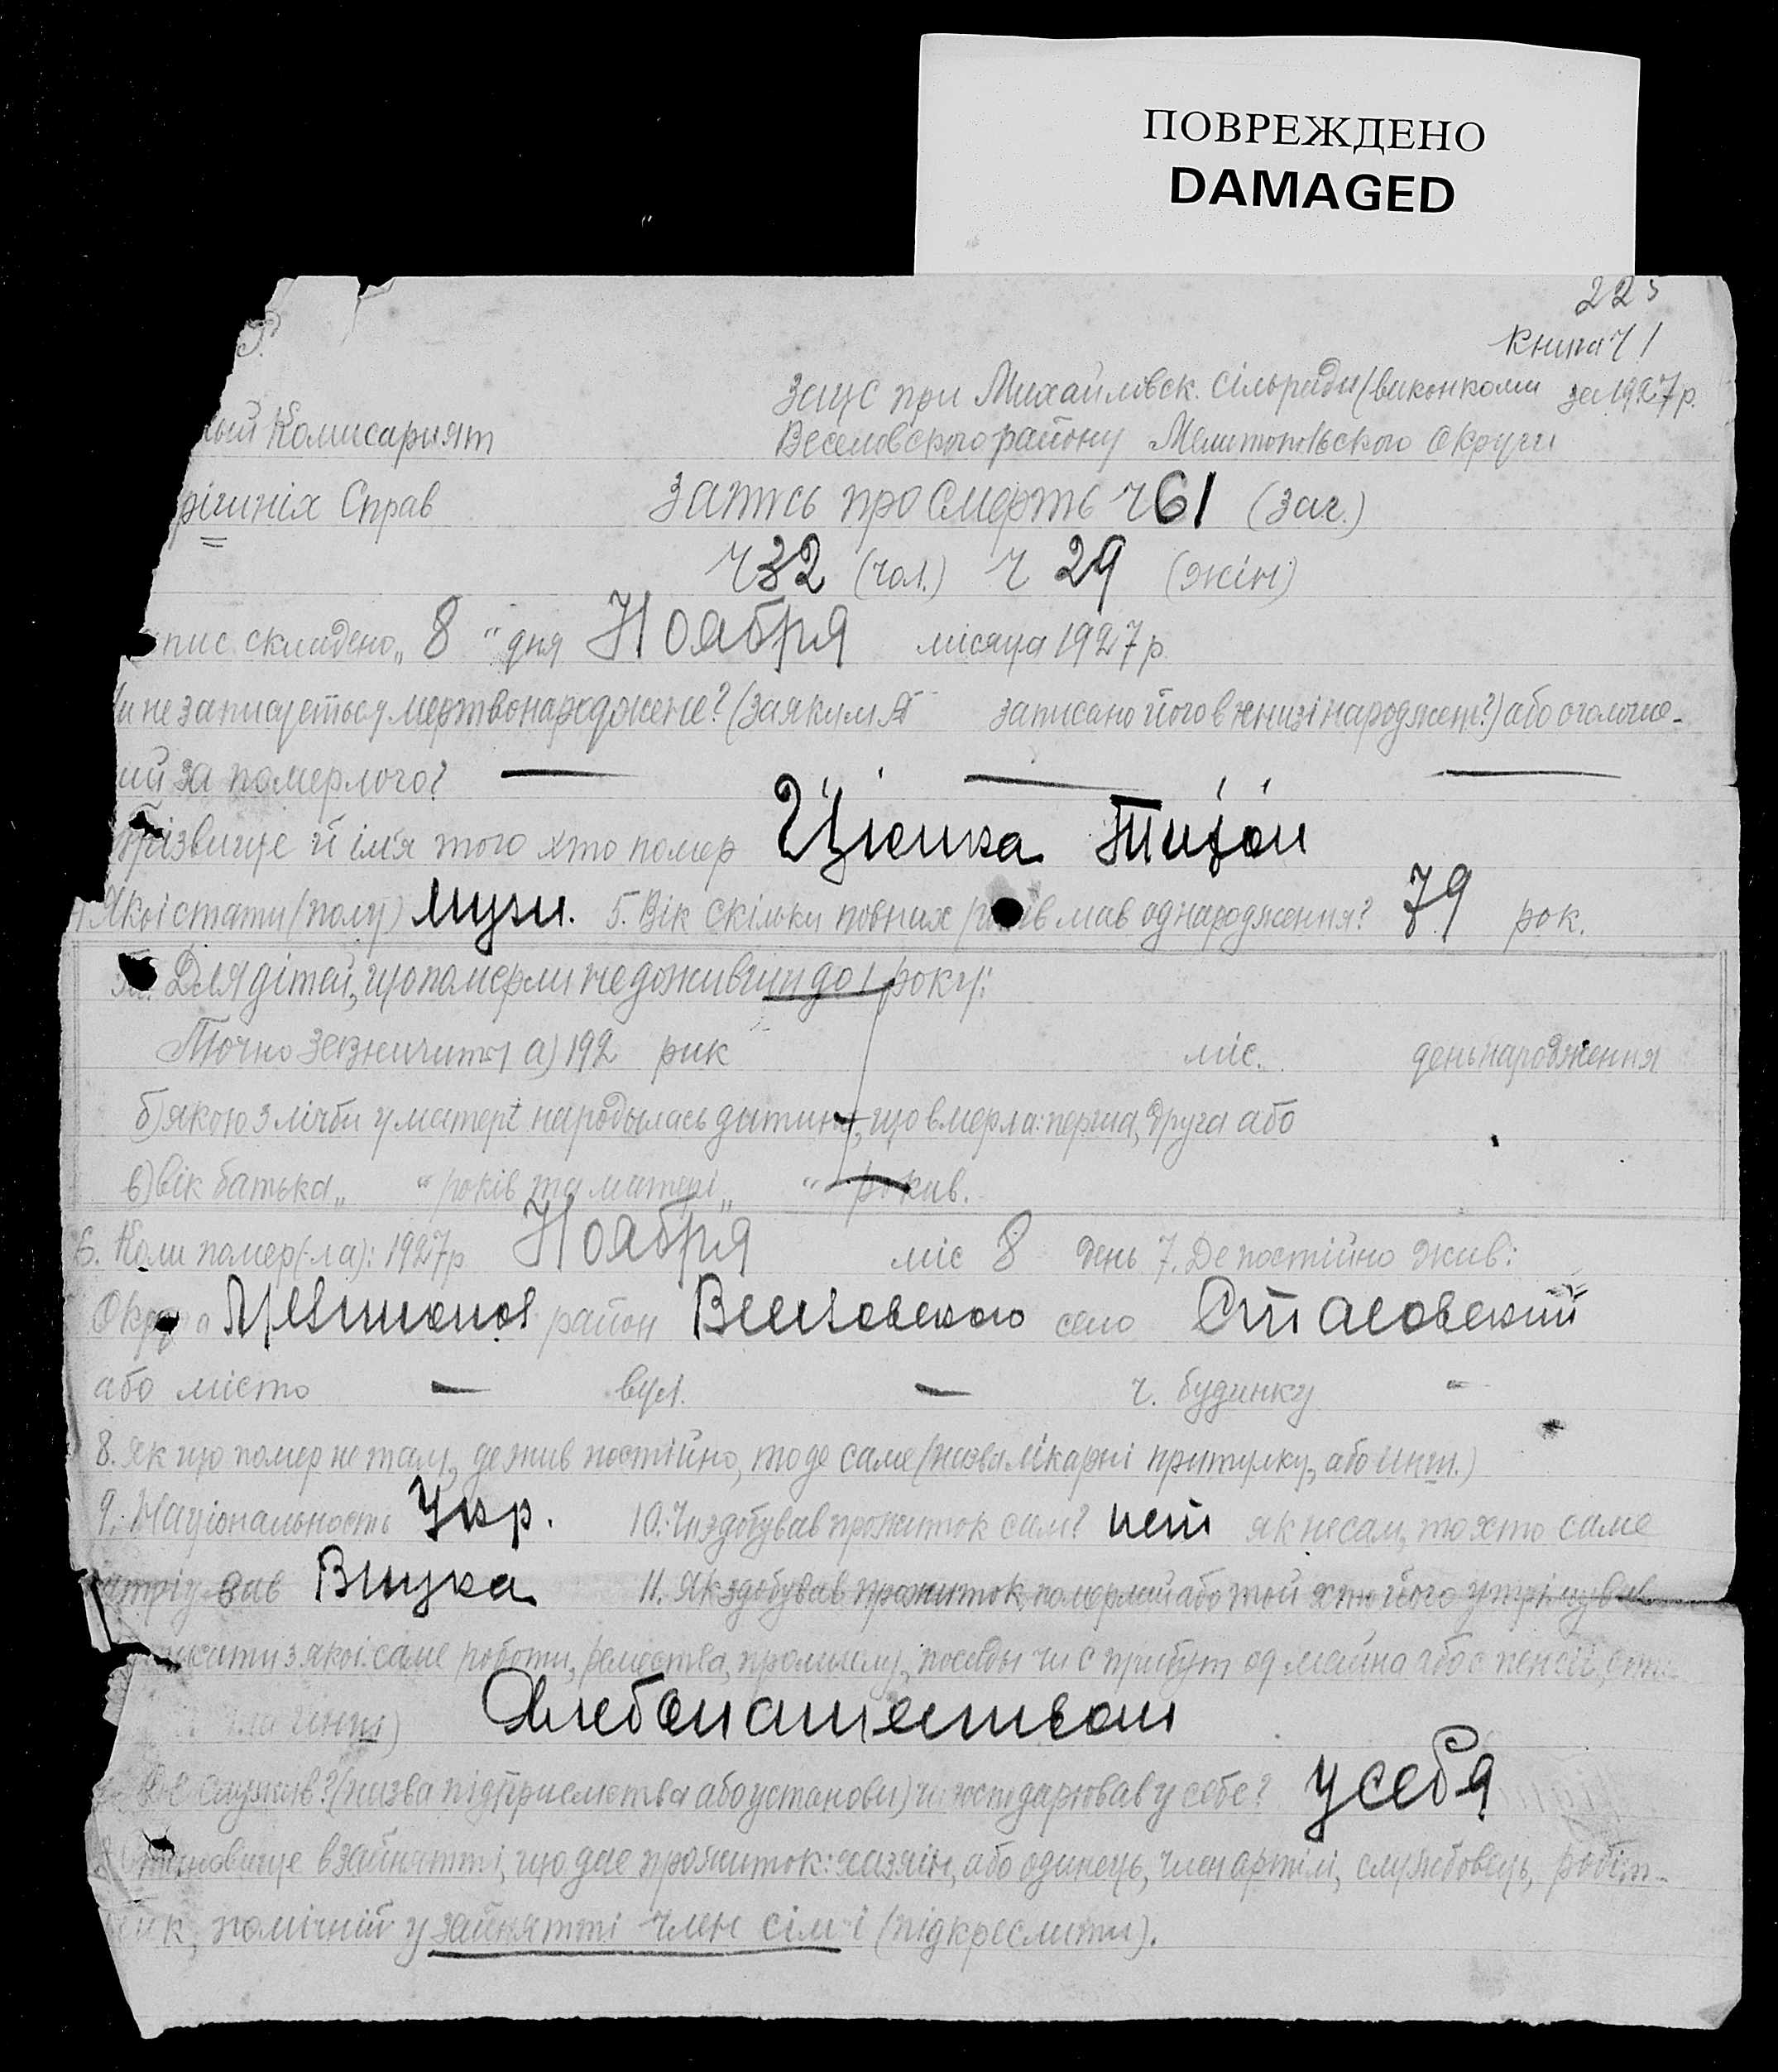 ПОВРЕЖДЕНО
DAMAGED
223
Книга Ч 1
Загс при Михайловск. сільради (виконкоми за 1927 р.
ный Комисарият
Веселовского району Мелитопольского округи
рішніх Справ
Запись про смерть ч 61 (заг.)
ч 32 (чол.) ч 29 (жін)
пис складено „ 8 “ дня Ноября місяца 1927 р
и не записуеться мертвонароджене? (за яким № записано його в книзі народжен?) або оголоше-
ий за померлого? — — —
різвище й імя того хто помер Тихон
Якої стати (полу) мужч. 5. Вік скільки повних років мав од народження? 79 рок.
5а. Для дітей, що померли не доживши до 1 року:
Точно зазначити а) 192 рик міс. день народження
б) якою з лічби у матері народылась дитина, що вмерла: перша, друга або
в) вік батька „ “ років та матері „ “ рокив.
6. Коли помер(-ла): 1927 р Ноября міс 8 день 7. Де постійно жив:
Округа Мелитопол район Веселовского село Стасовский
або місто — вул. — ч. будинку -
8. Як що помер не там, де жив постійно, то де саме (назва лікарні притулку, або инш.)
9. Національность Укр. 10. Чи здобував прожиток сам? нет як не сам, то хто саме
утрімував Внука 11. Як здобував прожиток померлий або той хто його утрімував
з якої саме роботи, ремества, промислу, посяды чи с прибут од майна або с пенсії,
инш) Хлебопашеством
Де служив? (назва підприемства або установи) чи господарював у себе? У себя
Становище в зайнятті, що дае прожиток: хазяін, або одинець, член артілі, службовець, робіт-
ник, помічний у зайнятті член сім'і (підкреслити).